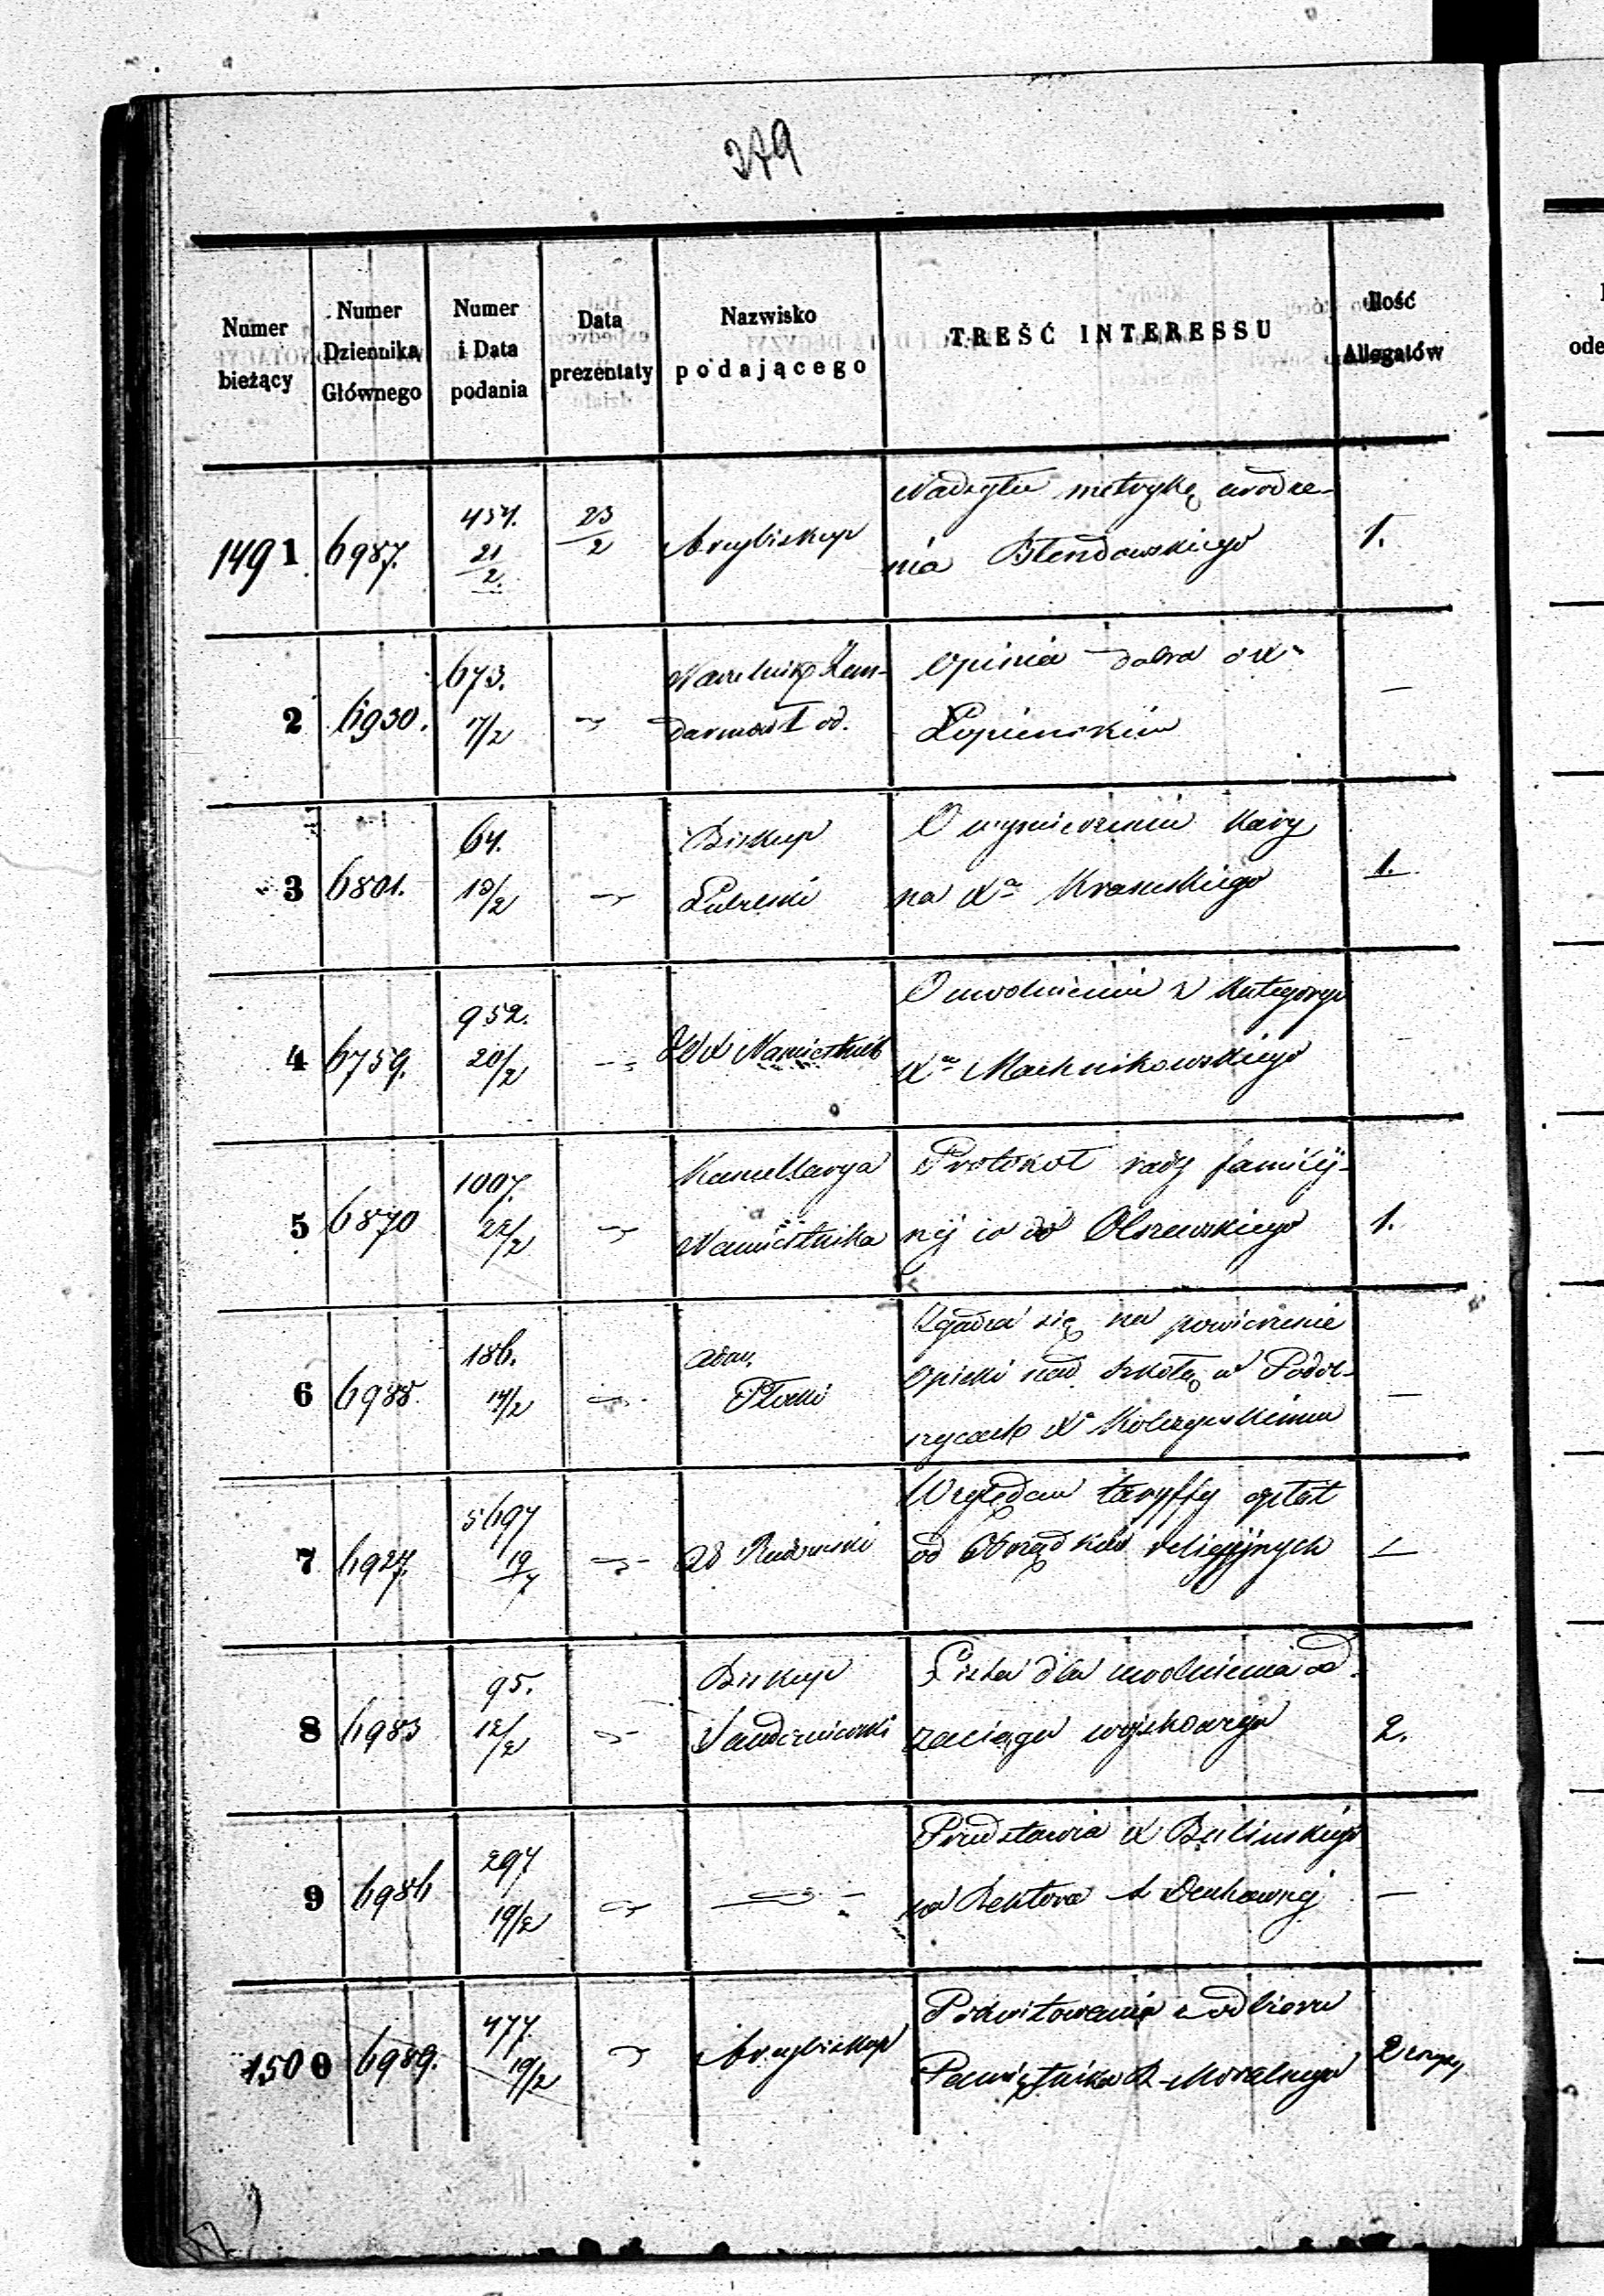 279
Numer bieżący
Numer Dziennika Głównego
Numer i Data podania
Data prezentaty
Nazwisko podającego
TREŚĆ INTERESSU
Ilość Allegatów
1491 6987. 457. 21/2. 23/2 Arcybiskup Nadsyła metrykę urodze-
nia Blendowskiego 1.
2 6930. 673. 17/2 Naczelnik Żan-
darmów I od. Opinia dobra o Xu
Łopieńskim —
3 6801. 64. 13/2 Biskup
Lubelski O wymierzeniu kary
na Xa Krasuskiego 1.
4 6759. 952. 20/2 Namiestnik O uwolnieniu z kategoryi
Xa Machnikowskiego
5 6870 1007. 22/2 Kancellarya
Namiestnika Protokół rady familij-
nej co do Olszewskiego 1.
6 6988. 186. 14/2 Adm.
Płocki Zgadza się na powierzenie
opieki nad szkołą w
Xu —
7 6927. 5697 19/7 Względem taryffy opłat
od Obrządków religijnych
8 6983 95. 12/2 Biskup
Sandomierski Lista dla uwolnienia od
zaciągu wojskowego 2.
9 6986 297 19/2 Przedstawia X Bulińskiego
na Rektora A Duchownej —
1500 6989. 477. 19/2 Arcybiskup Pokwitowania z odbioru
Pamiętnika R. Moralnego 2